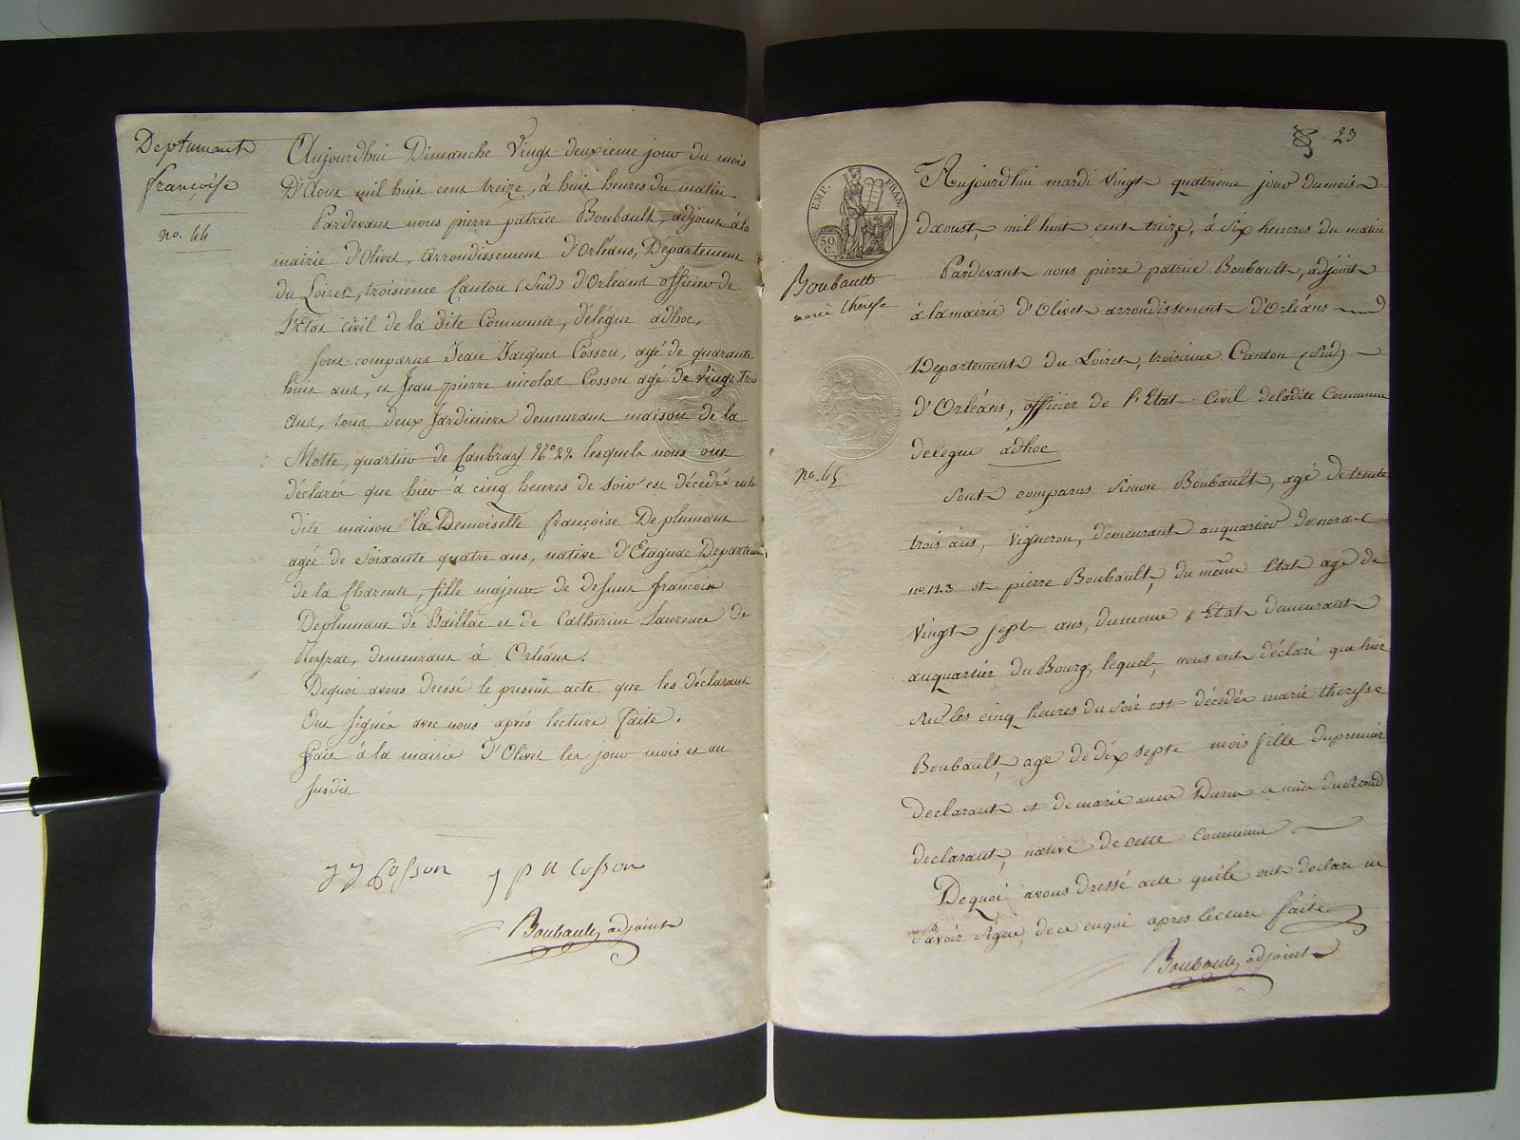 Deplument
françoise
no. 44
Aujourdhui Dimanche Vingt deuxieme jour du mois
D'Aout mil huit cent treize, à huit heures du matin
Pardevant nous pierre patrice Boubault, adjoint à la
mairie d'Olivet, arrondissement d'Orléans, Departement
du Loiret, troisieme Canton (Sud) d'Orleans officier de
l'Etat civil de la dite Commune, délégué adhoc,
Sont comparus Jean Jacques Cosson, agé de quarante
huit ans, et Jean pierre nicolas Cosson agé de vingt trois
ans, tous deux Jardiniers demeurant maison de la
Motte, quartier de Caubray No. 22 lesquels nous ont
déclarés que hier à cinq heures de soir est décédée en la
dite maison la Demoiselle françoise Deplument
agée de Soixante quatre ans, native d'Etagnac Departement
de la Charente, fille majeure de defunt françois
Deplument de Baillac et de Catherine Laurence de
demeurant à Orléans.
Dequoi avons dressé le present acte que les déclarant
ont signer avec nous apres lecture faite.
fait à la mairie d'Olivet les jour mois et an
susdit
J J Cosson J P N Cosson
Boubault, adjoint
23
EMP. FRAN.
50
C.
Boubault
marie therese
no. 45
Aujourdhui mardi vingt quatrieme jour du mois
daoust, mil huit cent treize, à six heures du matin
Pardevant nous pierre patrice Boubault, adjoint
à la mairie d'Olivet arrondissement d'Orléans
Departement du Loiret, troisieme Canton (Sud)
d'Orléans, officier de l'Etat Civil deladite Commune
delegué adhoc
Sont comparus Simon Boubault, agé de trente
trois ans, Vigneron, demeurant auquartier du
no. 123 et pierre Boubault, du même Etat agé de
Vingt sept ans, dumeme Etat demeurant
auquartier du Bourg, lequel, nous ont déclaré que hier
sur les cinq heures du soir est décédée marie therese
Boubault, agé de dix sept mois fille dupremier
declarant et de marie anne et niece dusecond
declarant, native de cette commune
Dequoi avons dressé acte quils ont declaré ne
Savoir signer, de ce enquis apres lecture faite
Boubault, adjoint